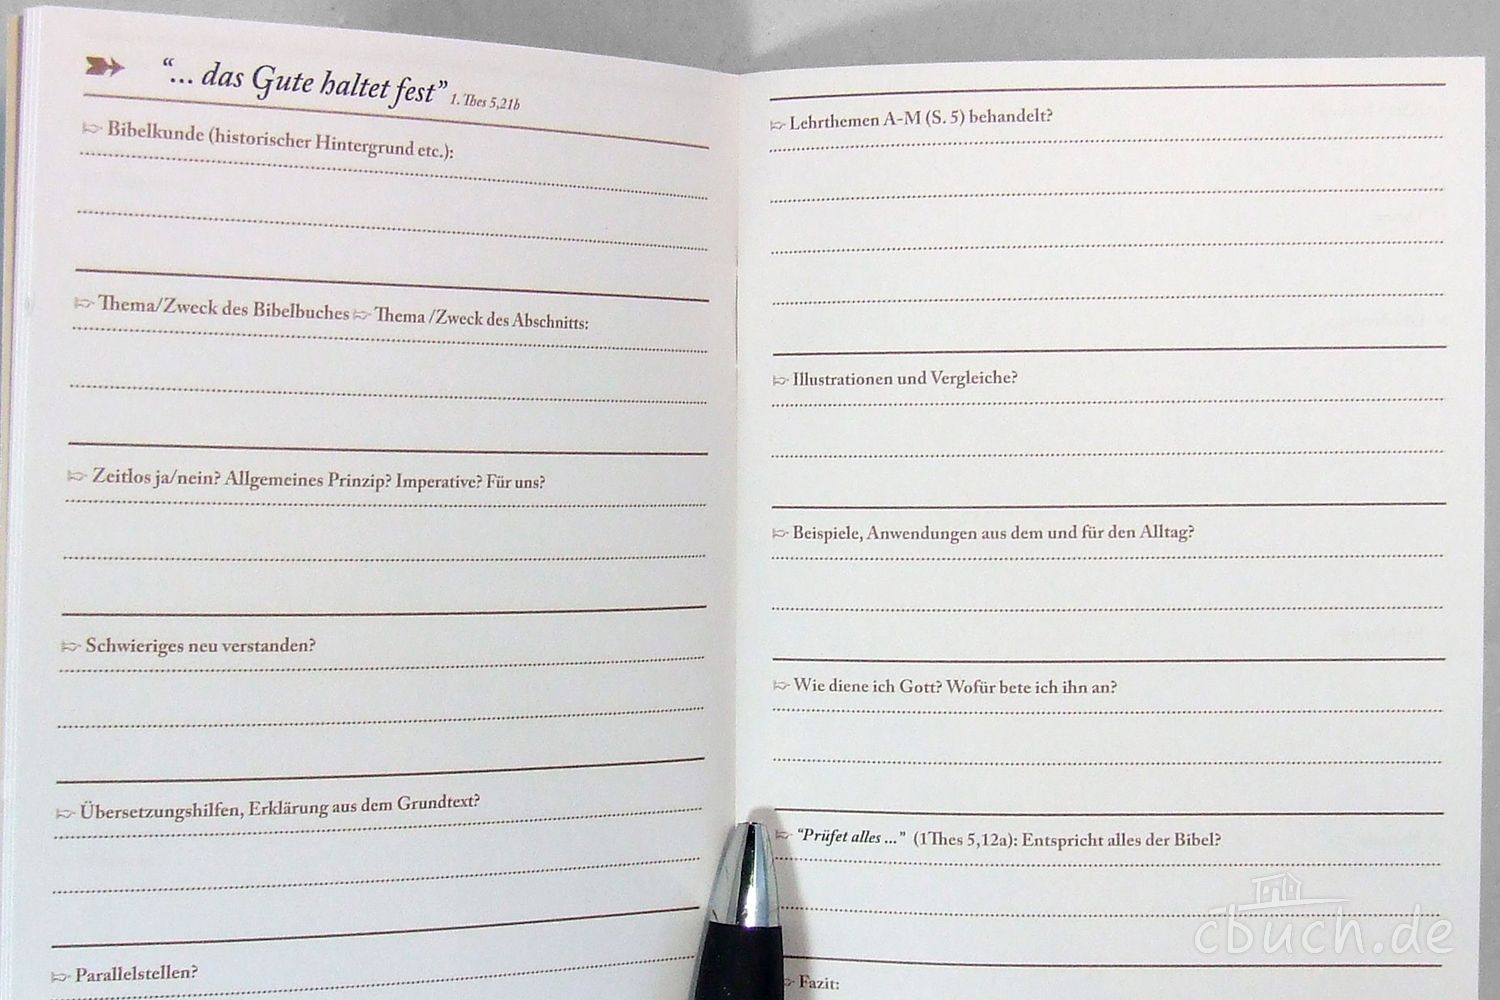 “... das Gute haltet fest” 1. Thes 5,21b
Bibelkunde (historischer Hintergrund etc.):
Thema/Zweck des Bibelbuches Thema /Zweck des Abschnitts:
Zeitlos ja/nein? Allgemeines Prinzip? Imperative? Für uns?
Schwieriges neu verstanden?
Übersetzungshilfen, Erklärung aus dem Grundtext?
Parallelstellen?
Lehrthemen A-M (S. 5) behandelt?
Illustrationen und Vergleiche?
Beispiele, Anwendungen aus dem und für den Alltag?
Wie diene ich Gott? Wofür bete ich ihn an?
“Prüfet alles ...” (1Thes 5,12a): Entspricht alles der Bibel?
Fazit:
cbuch.de